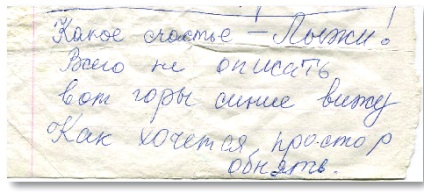 Какое счастье – Лыжи!
Всего не описать
вот горы синие вижу
Как хочется простор
обнять.